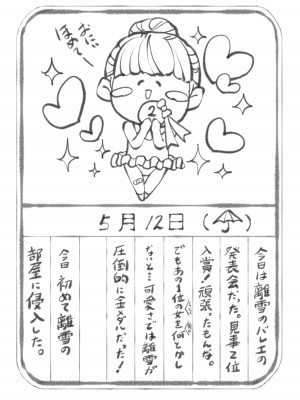 おにい
ほめてー
2
5月12日(☂)
今日は離雪のバレエの
発表会だった。見事2位
入賞!頑張ったもんな。
でもあの1位の女を何とかし
ないと…可愛さでは離雪が
圧倒的に金メダルだった!
今日初めて離雪の
部屋に侵入した。